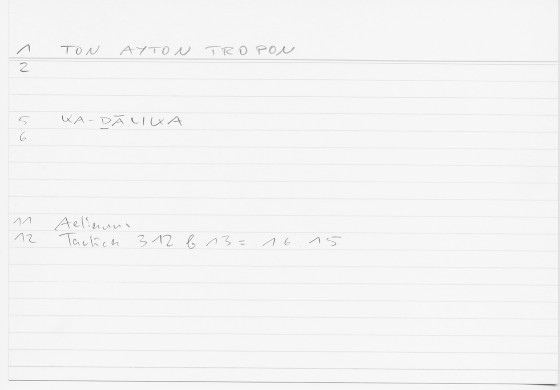 1 TON AYTON TROPON
2
5 KA-DĀLIKA
6
11 Aelianus
12 Tactica 312 b 13 = 16 15